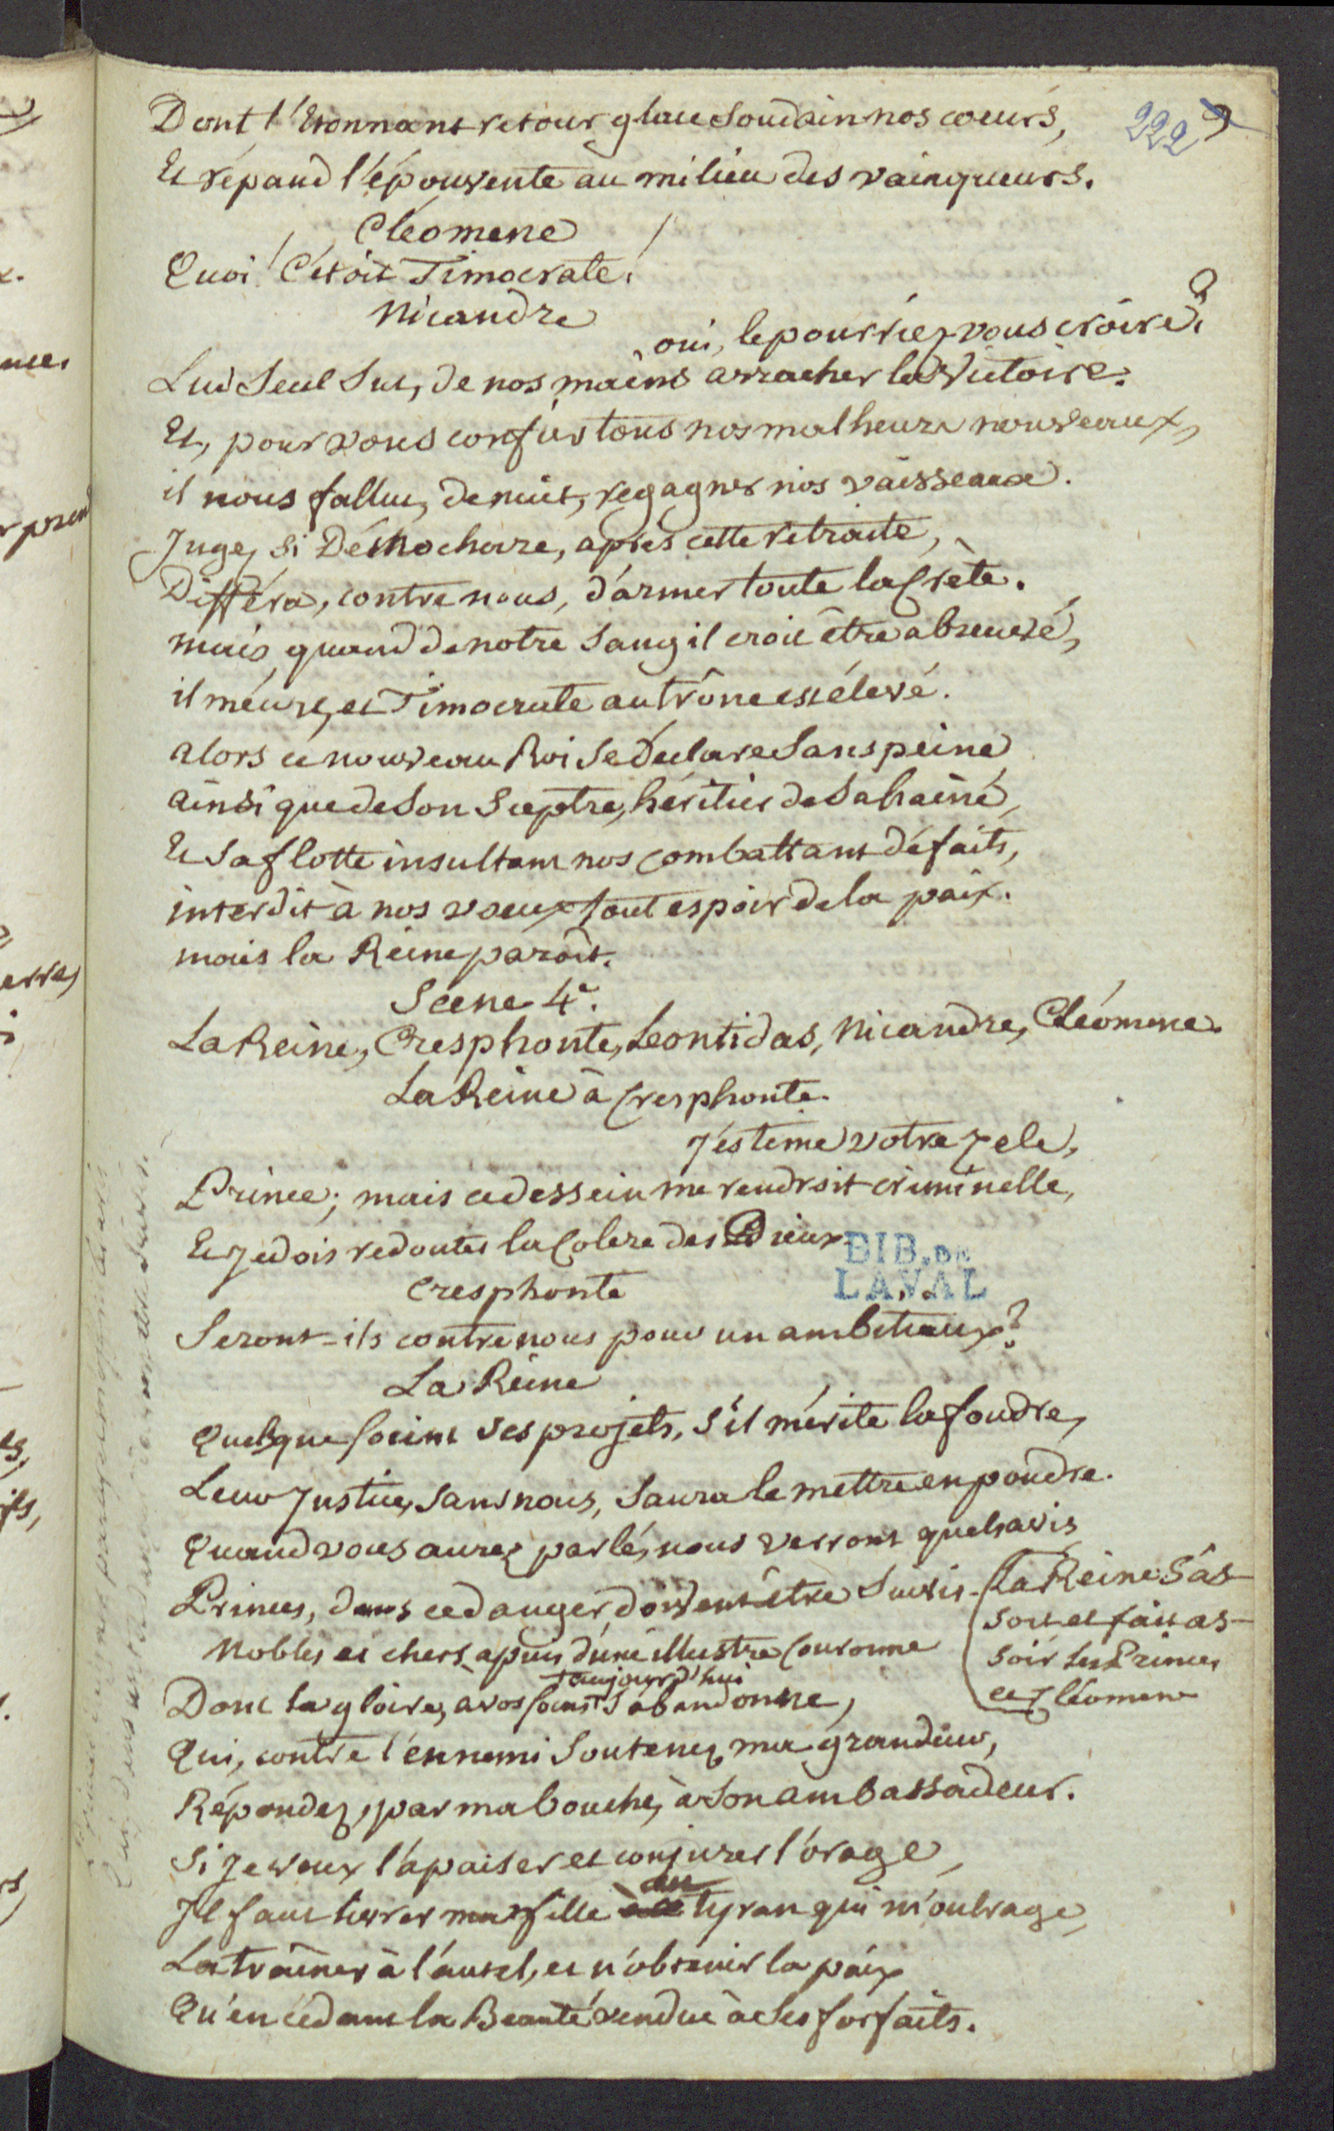 222 9
Dont l'Etonnant retour glace Soudain nos coeurs,
Et répand l'épouvente au milieu des vainqueurs.
Cléomene
Quoi! C'étoit Timocrate!
Nicandre
oui, le pourriez vous croire?
Lui Seul Sut, de nos mains arracher la Victoire.
Et, pour vous confier tous nos malheurs nouveaux,
il nous fallut, de nuit, regagner nos vaisseaux.
Jugez si Démochare, après cette retraite,
Différa, contre nous, d'armer toute la Crète.
mais quand de notre Sang il croit être abreuvé,
il meurt, et Timocrate au trône est élevé.
alors ce nouveau Roi Se déclare Sans peine
ainsi que de Son Sceptre, héritier de Sa haine,
Et Sa flotte insultant nos combattant défaits,
interdit à nos voeux tout espoir de la paix.
mais la Reine paroit.
Scene 4e.
La Reine, Cresphonte, Leontidas, Nicandre, Cléomene.
La Reine à Cresphonte.
J'estime votre zele,
Prince; mais ce dessein me rendroit criminelle,
Et je dois redouter la Colere des Dieux.
BIB. DE
LAVAL
Cresphonte
Seront-ils contre nous pour un ambitieux?
La Reine
Quelque soient Ses projets, s'il mérite la foudre,
Leur Justice, Sans nous, Saura le mettre en poudre.
Quand vous aurez parlé, nous verrons quels avis
Princes, dans ce danger, doivent être Suivis.
(La Reine S'as-
soit et fait as-
soir les Princes
et Cléomene
Nobles et chers apuis d'une illustre Couronne
Dont la gloire, à vos soins aujourd'hui S'abandonne,
Qui, contre l'ennemi Soutenez ma grandeur,
Répondez, par ma bouche, à Son ambassadeur.
Si je veux l'apaiser et conjurer l'orage,
Il faut livrer ma fille au tyran qui m'outrage,
La traîner à l'autel, et n'obtenir la paix
Qu'en cédant la Beauté vendue à Ses forfaits.